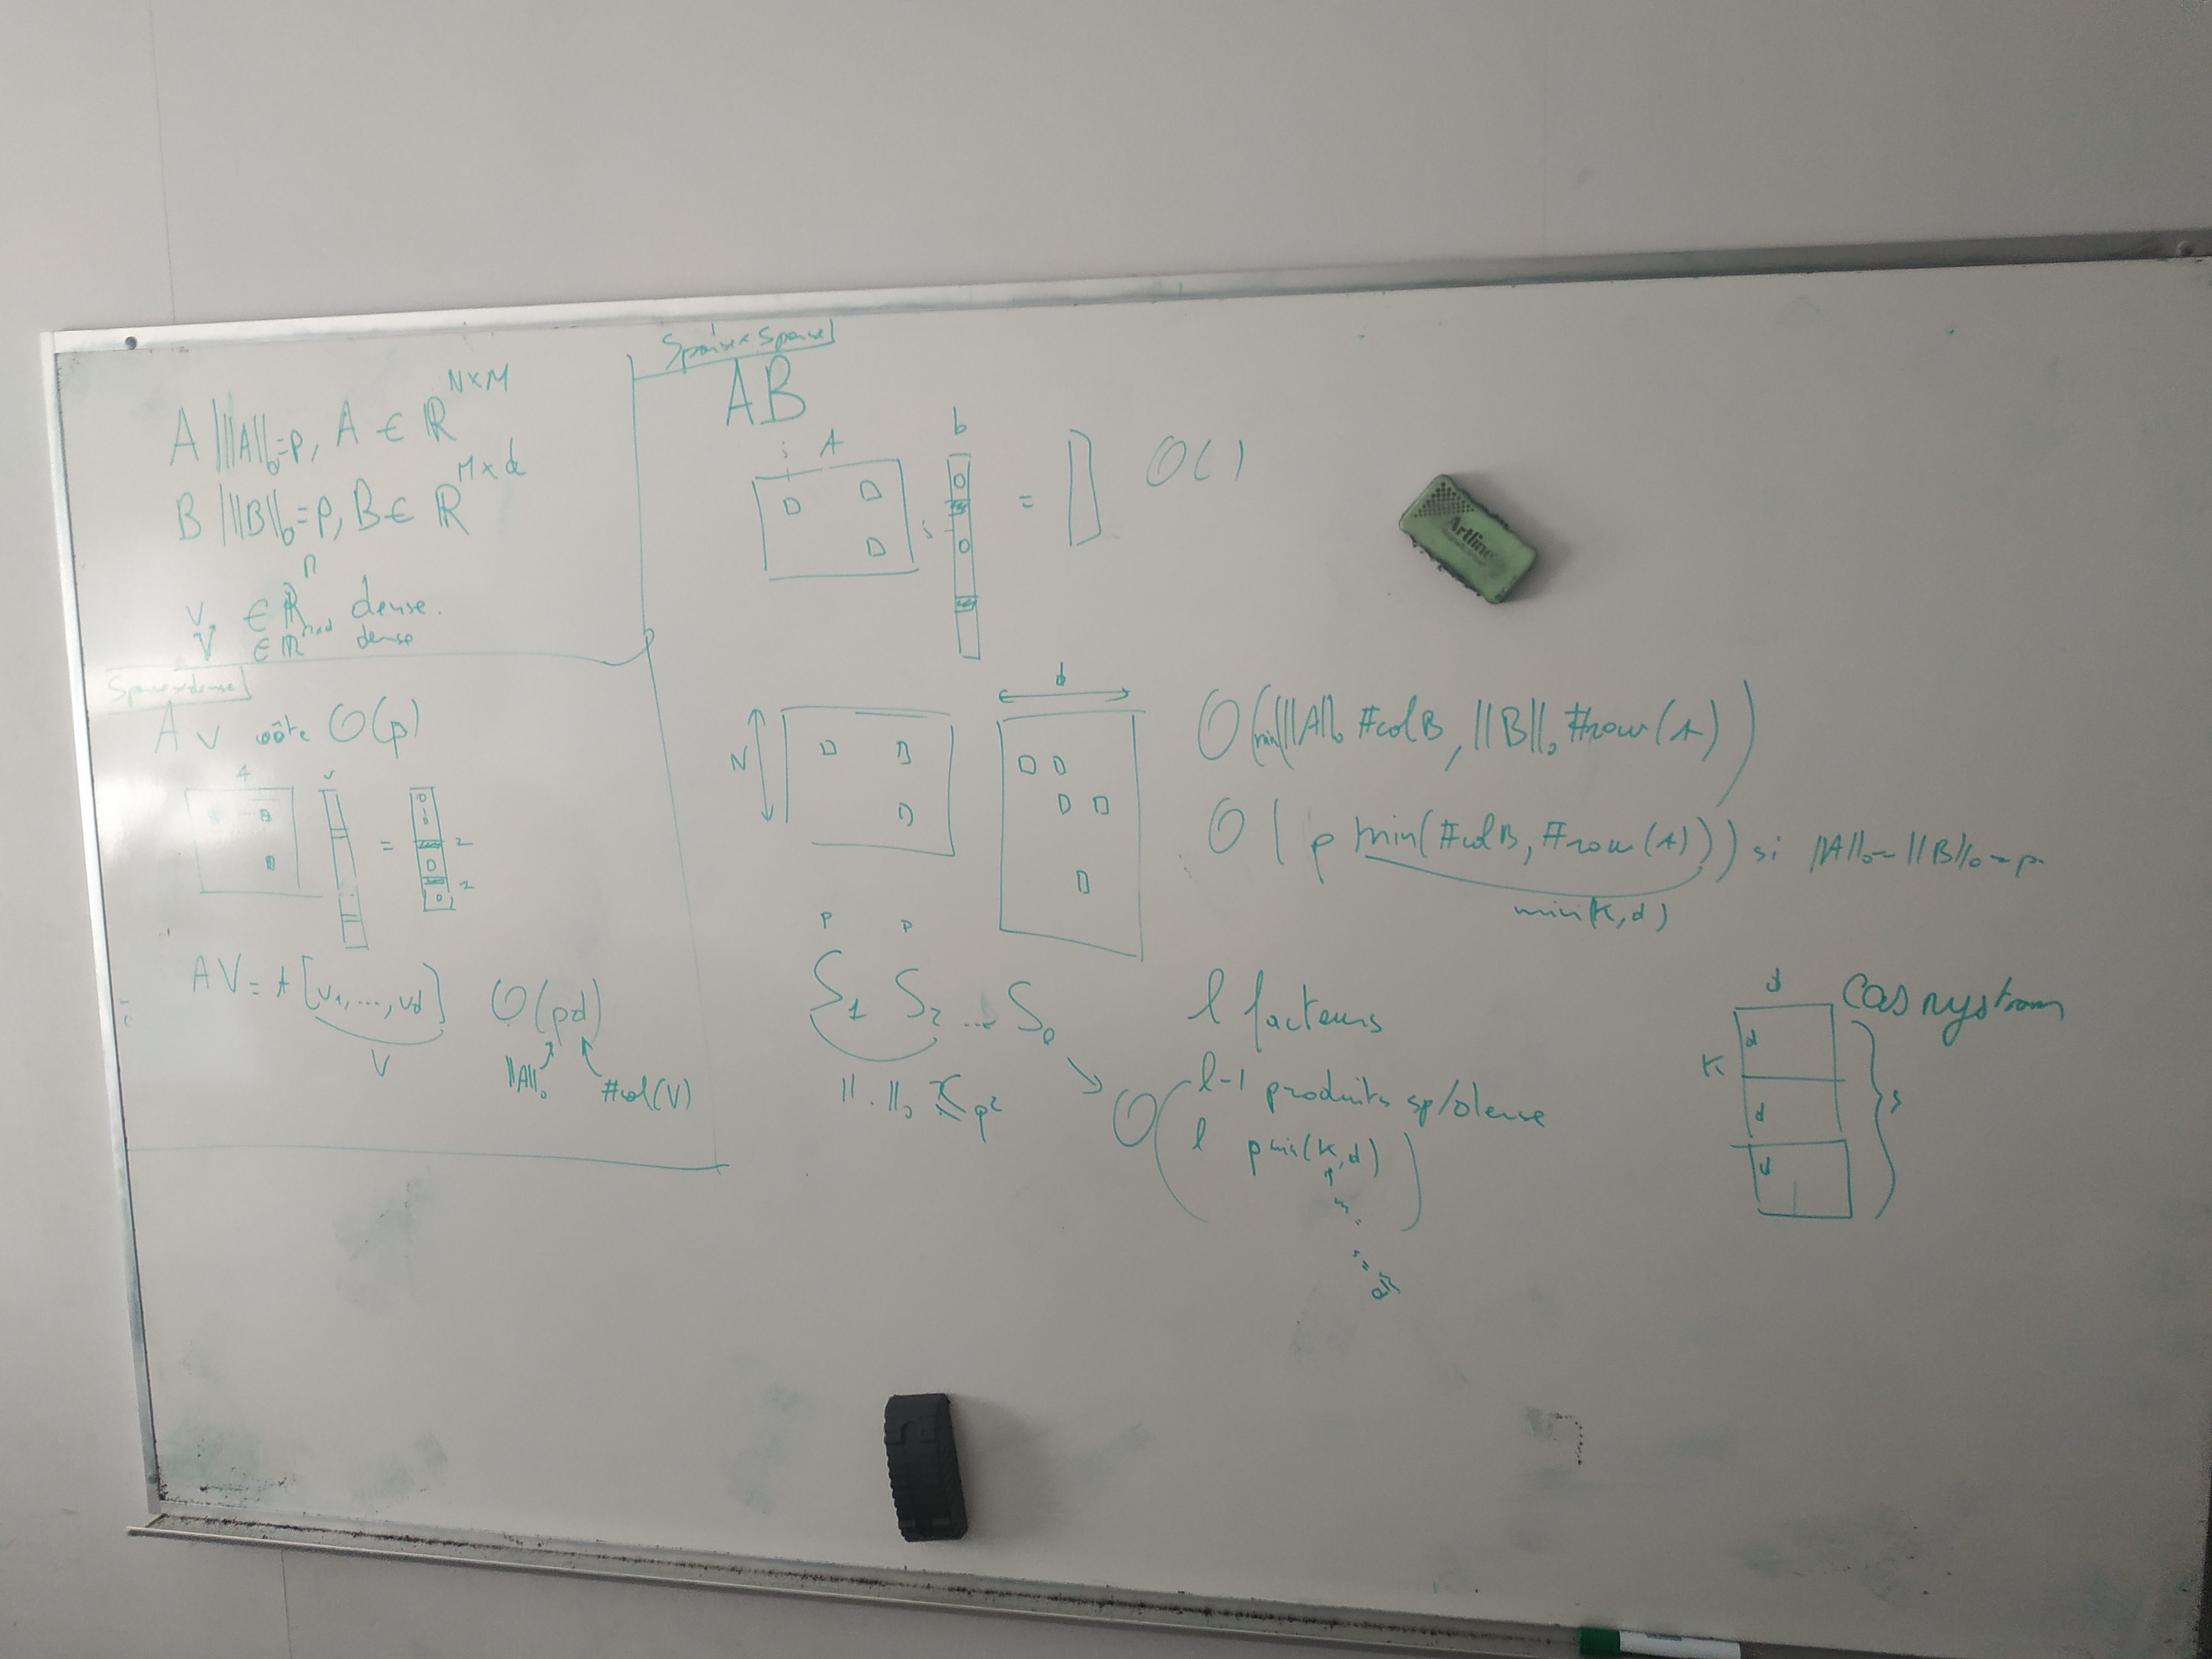 A | ||A||₀=p, A ∈ ℝ^{N×M}
B | ||B||₀=p, B ∈ ℝ^{M×d}
v ∈ ℝⁿ dense.
V ∈ ℝ^{n×d} dense
Sparse×dense
A v coûte O(p)
A v
=
AV = A [v₁, ..., v_d] O(pd)
V ||A||₀ #col(V)
Sparse×Sparse
AB
A b
= O( )
d
N
O(min(||A||₀ #colB, ||B||₀ #row(A))
O( p min(#colB, #row(A))) si ||A||₀ = ||B||₀ = p
min(K,d)
p p
S₁ S₂ ... S_l l facteurs
||.||₀ ≤ p²
l-1 produits sp/dense
O( l p min(K,d) )
Cas nystrom
d
d
K
d